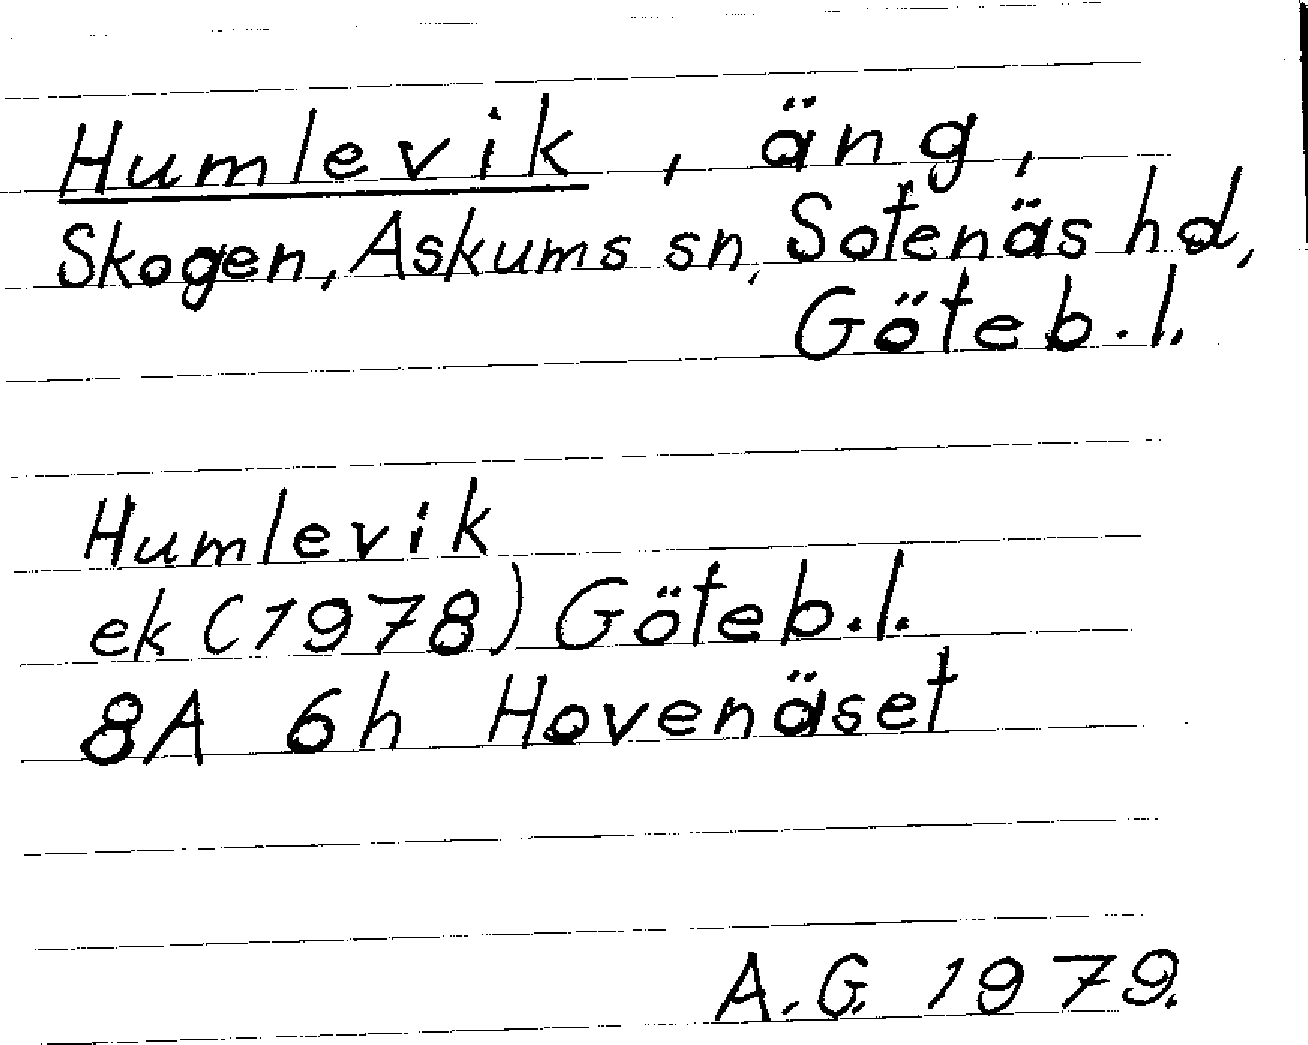 Humlevik, äng,
Skogen, Askums sn, Sotenäs hd,
Göteb.l.
Humlevik
ek (1978) Göteb.l.
8A 6h Hovenäset
A.G. 1979.